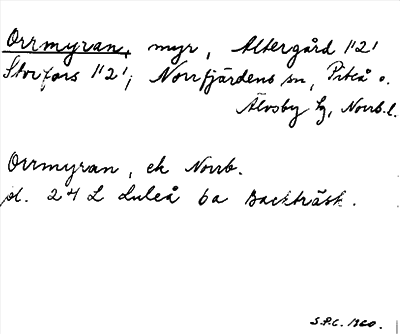 Orrmyran, myr, Altergård 1'2'
Storfors 1'2'; Norrfjärdens sn, Piteå o.
Älvsby tg, Norrb.l.
Orrmyran, ek Norrb.
pl. 24 L Luleå 6a Backträsk.
S.P.C. 1960.